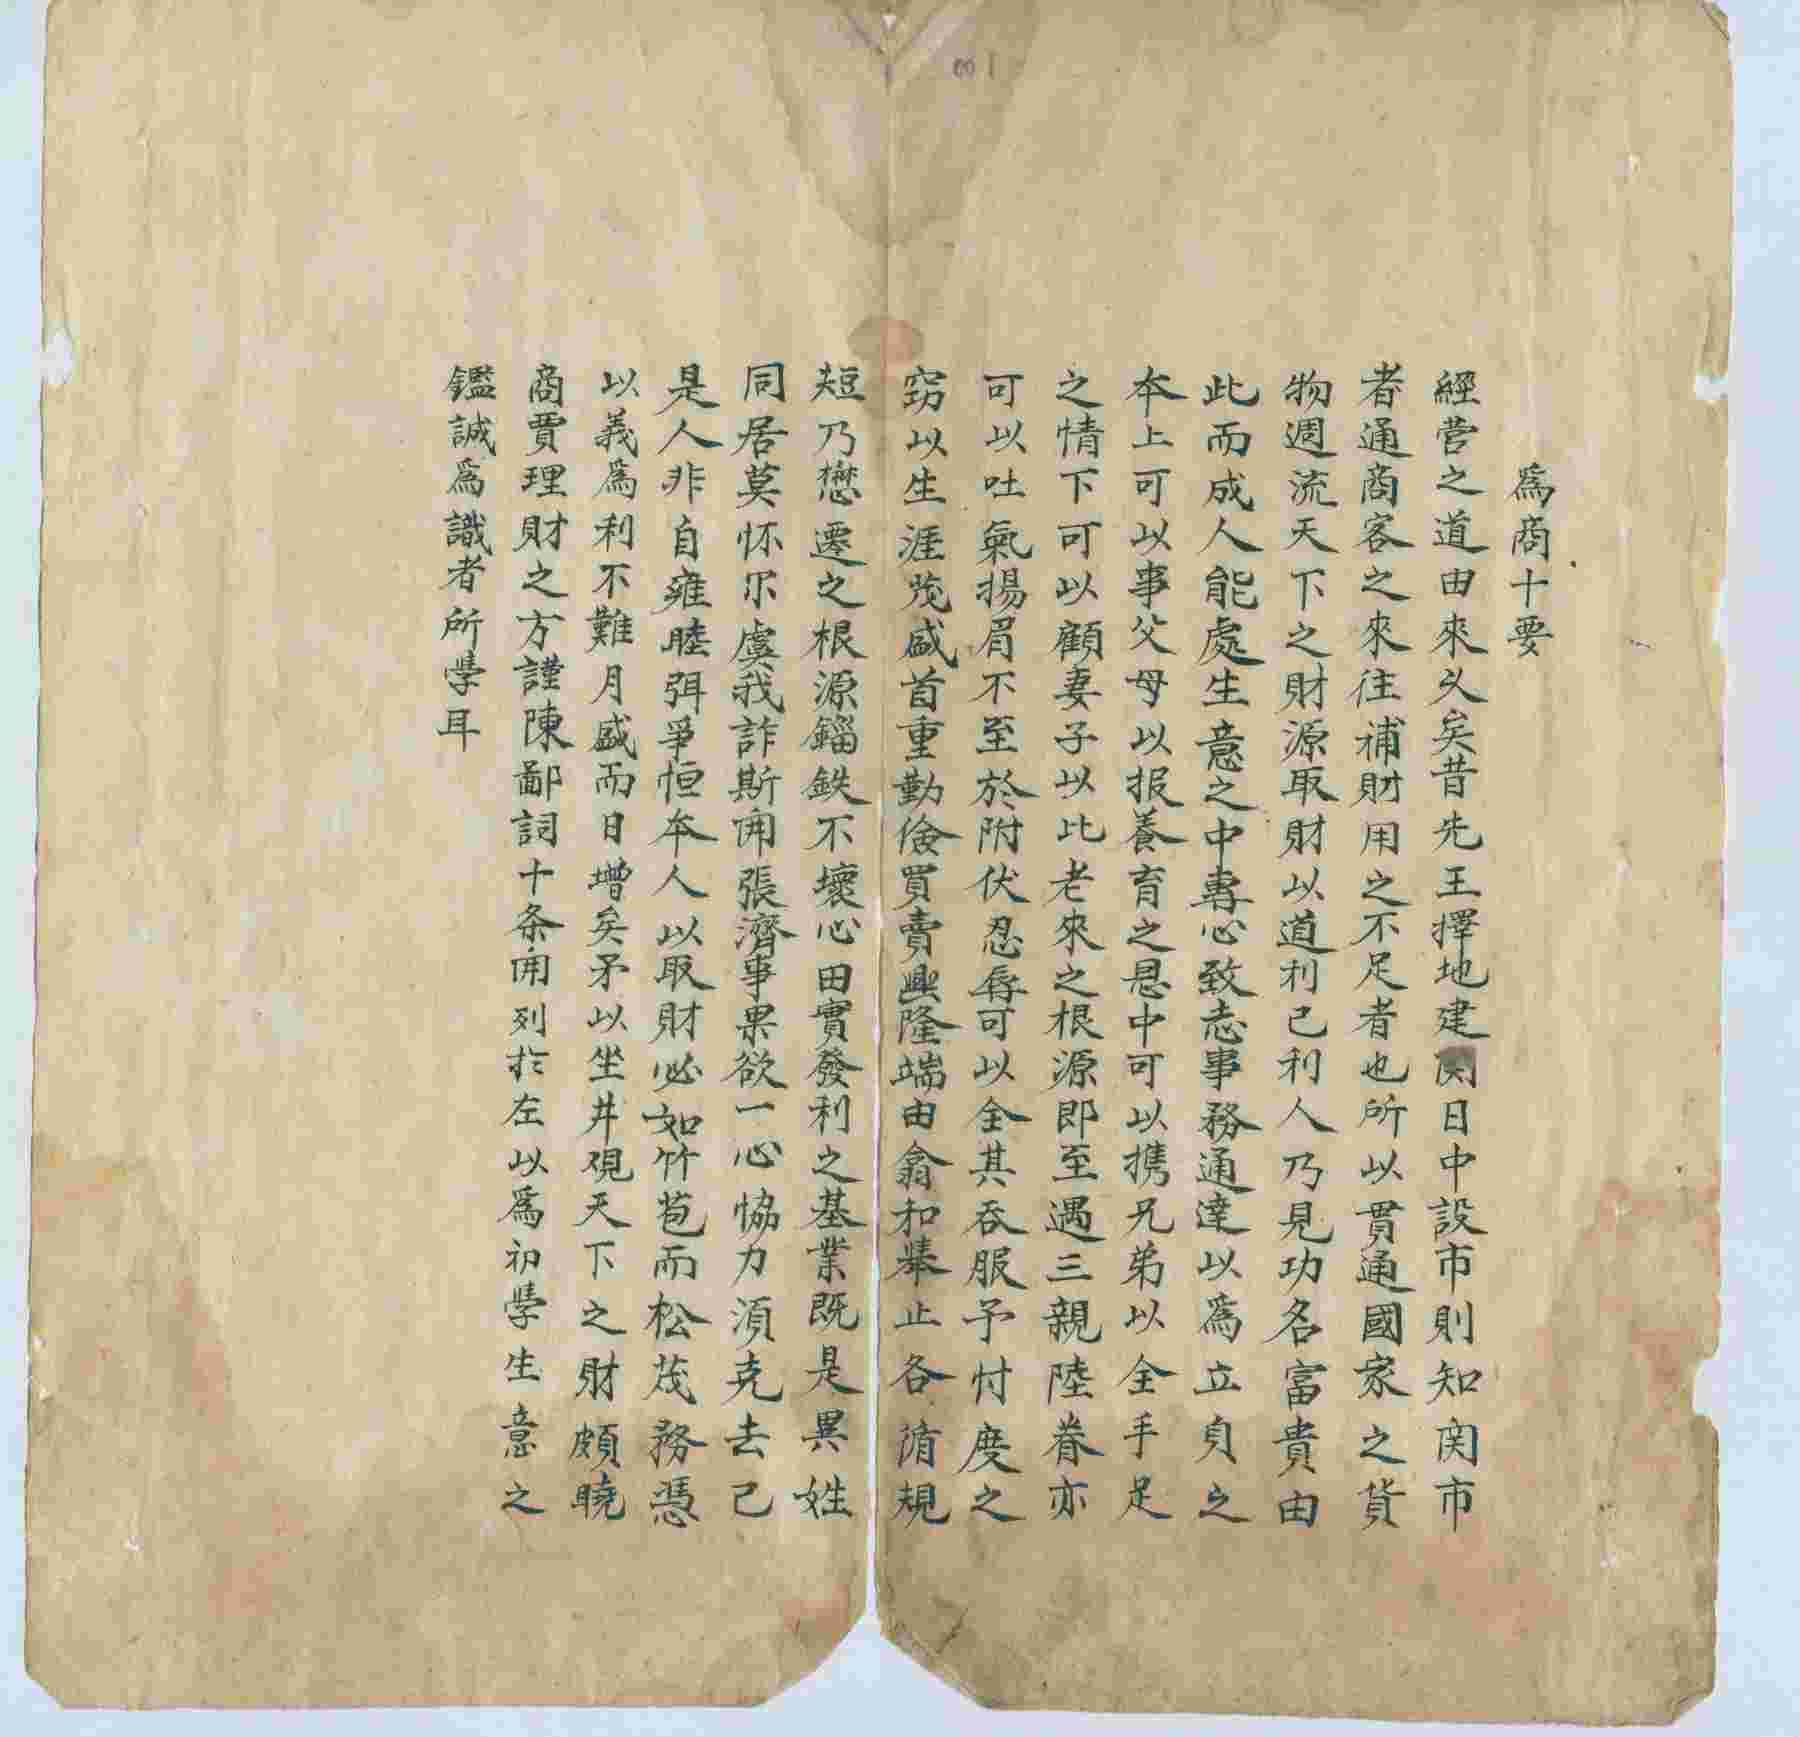 爲商十要
經營之道由來乆矣昔先王擇地建関日中設市則知関市
者通商客之來往補財用之不足者也所以貫通國家之貨
物週流天下之財源取財以道利己利人乃見功名富貴由
此而成人能處生意之中專心致志事務通達以爲立身之
本上可以事父母以报養育之恩中可以携兄弟以全手足
之情下可以顧妻子以比老來之根源即至遇三親陸眷亦
可以吐氣揚眉不至於附伏忍辱可以全其吞服予忖度之
窃以生涯茂盛首重勤儉買賣興隆端由翕和舉止各循規
短乃懋遷之根源錙鉄不壞心田實發利之基業既是異姓
同居莫怀尔虞我詐斯開張濟事果欲一心恊力須克去己
是人非自雍睦弭爭恒本人以取財必如竹苞而松茂務憑
以義爲利不難月盛而日增矣矛以坐井覌天下之財頗曉
商賈理財之方謹陳鄙詞十条開列扵左以爲初學生意之
鑑誠爲識者所學耳